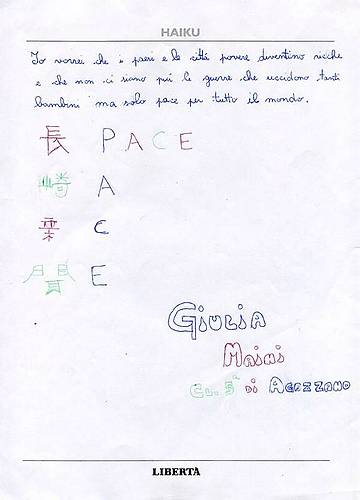 HAIKU
Io vorrei che i paesi e le città povere diventino ricche
e che non ci siano più le guerre che uccidono tanti
bambini ma solo pace per tutto il mondo.
長 PACE
崎 A
C
E
GIULIA
MAINI
CL. 5ª DI AGAZZANO
LIBERTÀ